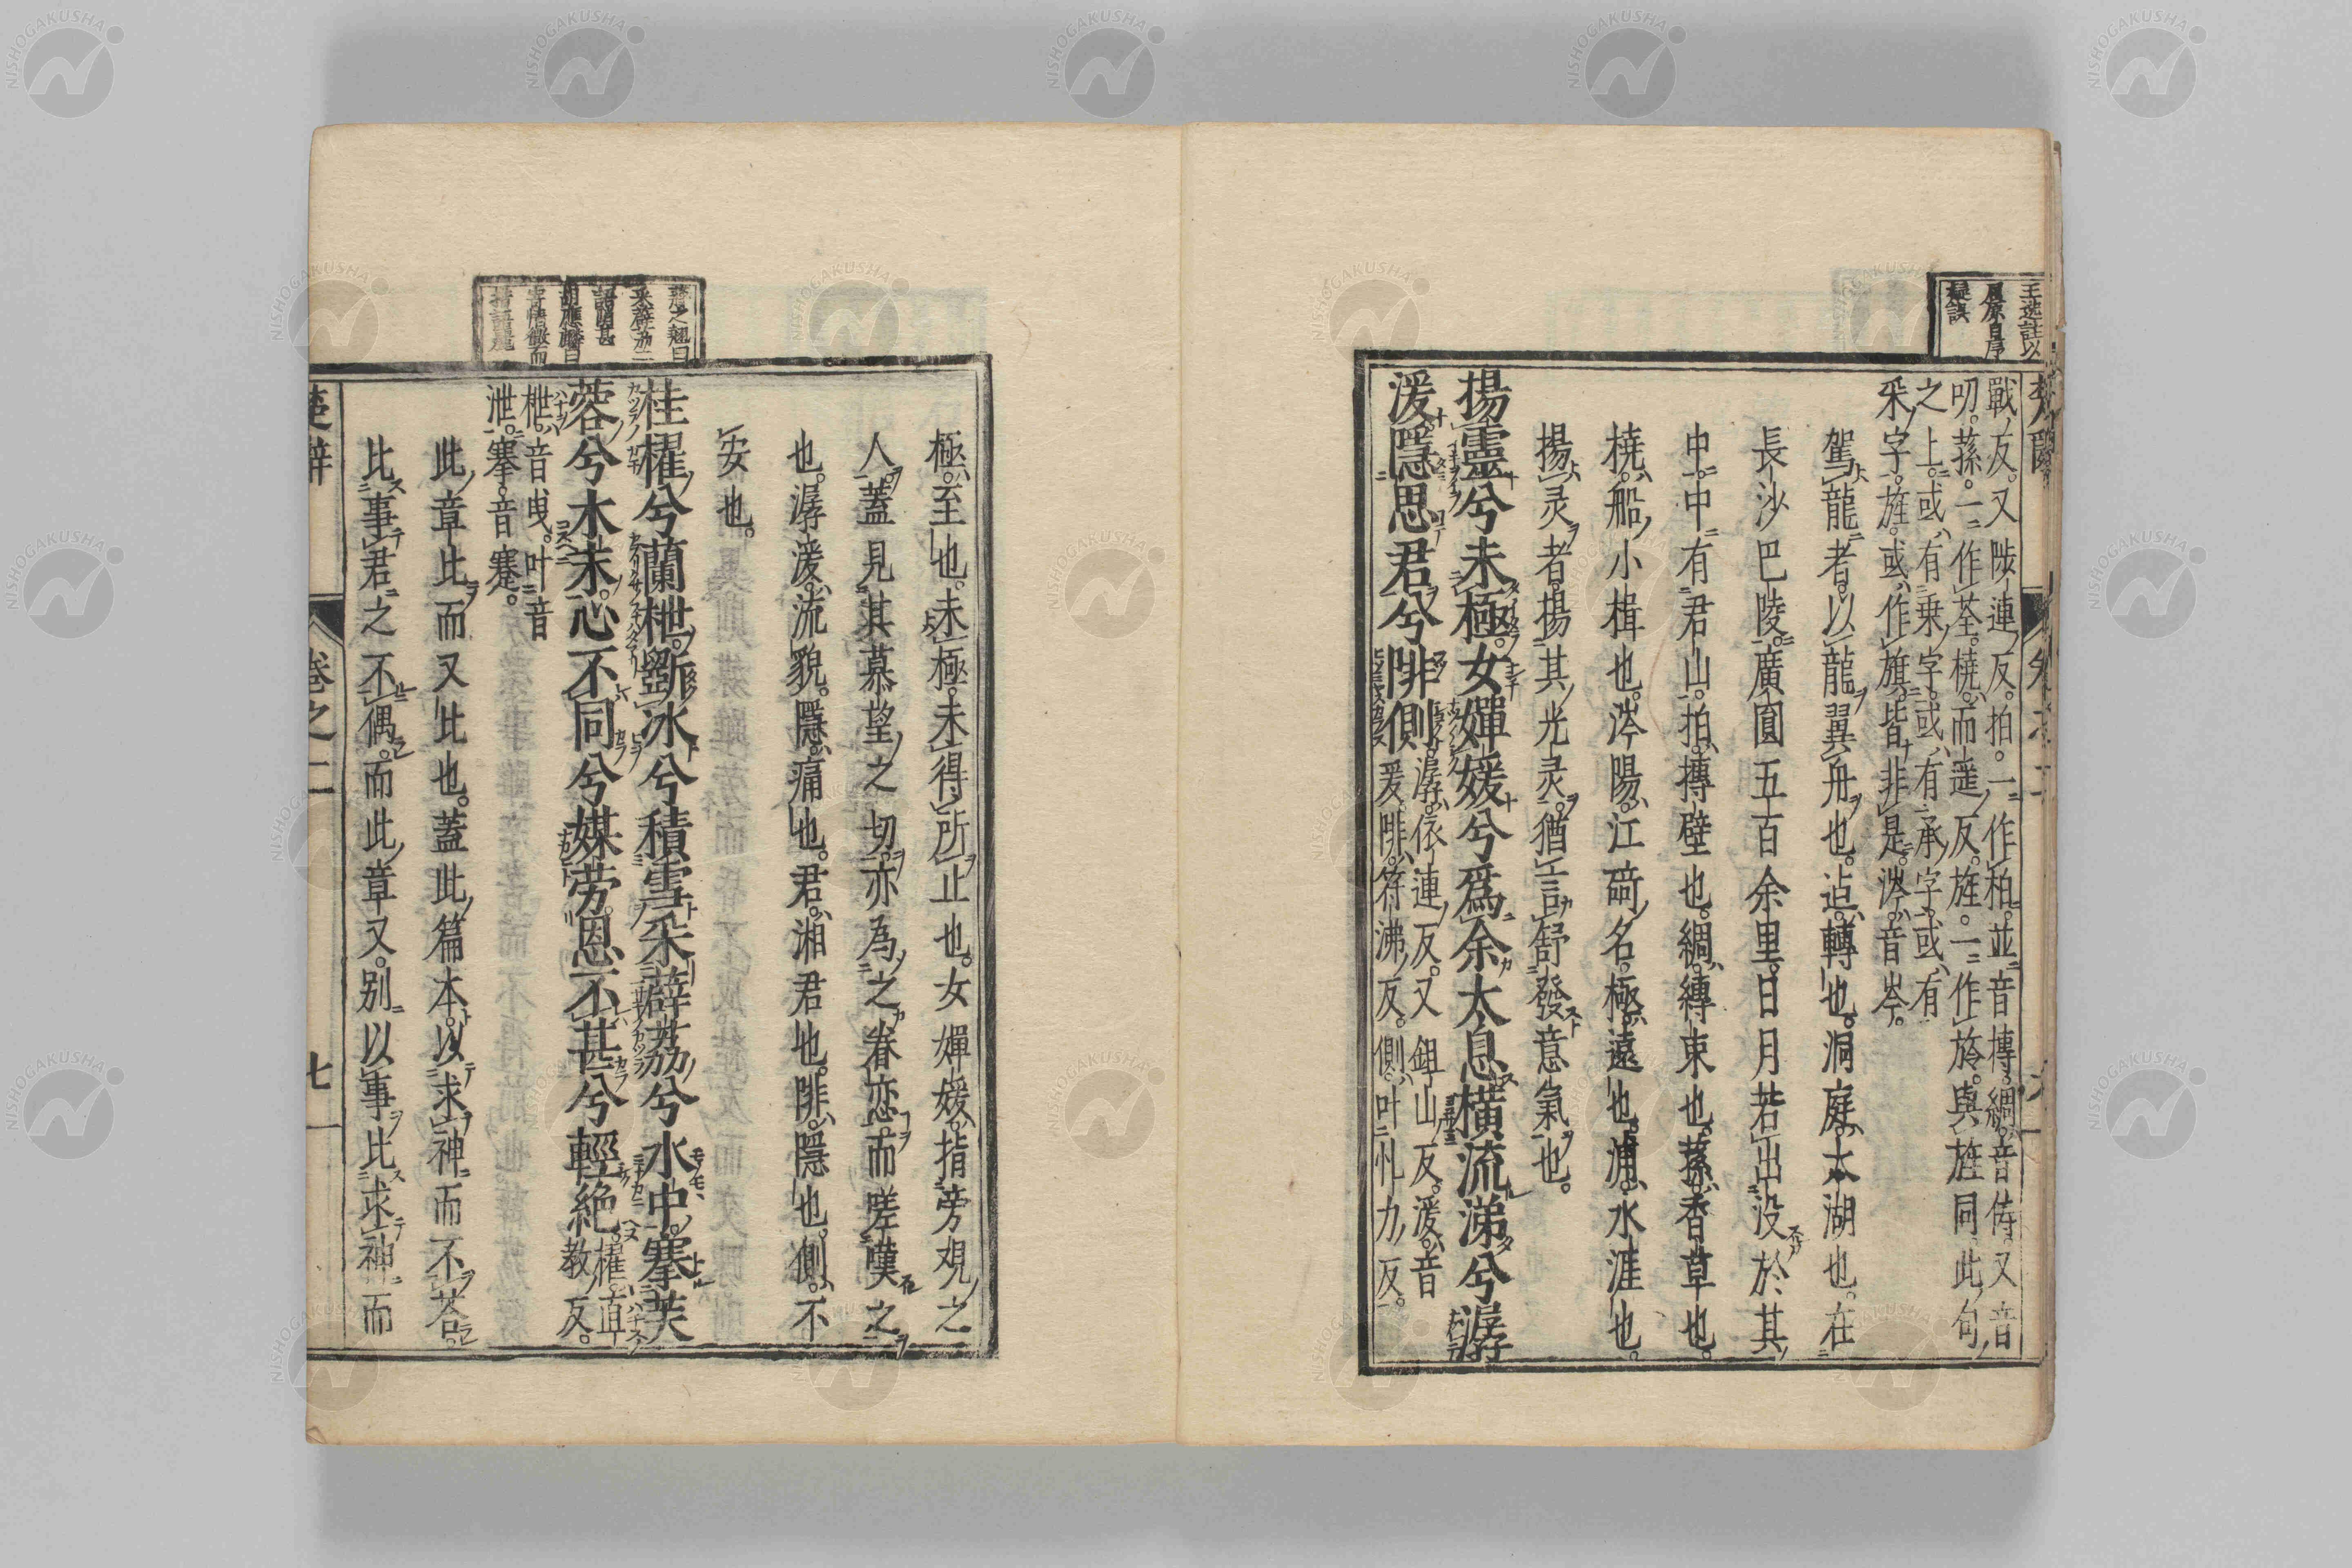 王逸註以
屈原自序
疑誤
戰反。又陟連反。拍。一作柏。並音搏。綢。音儔。又音
叨。蓀。一作荃。橈。而遥反。旌。一作旍。與旌同。此句
之上。或有乗字。或有承字。或有
采字。旌。或作旗。皆非是。涔。音岑。
駕龍者。以龍翼舟也。邅。轉也。洞庭。太湖也。在
長沙巴陵。廣圎五百余里。日月若出没於其
中。中有君山。拍。搏壁也。綢。縛束也。蓀。香草也。
橈。船小楫也。涔陽。江碕名。極。遠也。浦。水涯也。
揚灵者。揚其光灵。猶言舒發意氣也。
揚靈兮未極。女嬋媛兮爲余太息。橫流涕兮潺
湲。隱思君兮陫側。潺。依連反。又鉏山反。湲。音
爰。陫。符沸反。側。叶札力反。
極。至也。未極。未得所止也。女嬋媛。指旁覌之
人。蓋見其慕望之切。亦為之眷恋。而嗟嘆之
也。潺湲。流貌。隱。痛也。君。湘君也。陫。隱也。側。不
安也。
桂櫂兮蘭枻。斵冰兮積雪。采薜荔兮水中。搴芙
蓉兮木末。心不同兮媒勞。恩不甚兮輕絶。櫂。直
教反。
枻。音曳。叶音
泄。搴。音蹇。
此章比而又比也。蓋此篇本以求神而不荅。
比事君之不偶。而此章又别以事比求神而
楚辭
卷之二
七